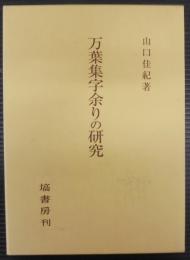 山口佳紀著
万葉集字余りの研究
塙書房刊